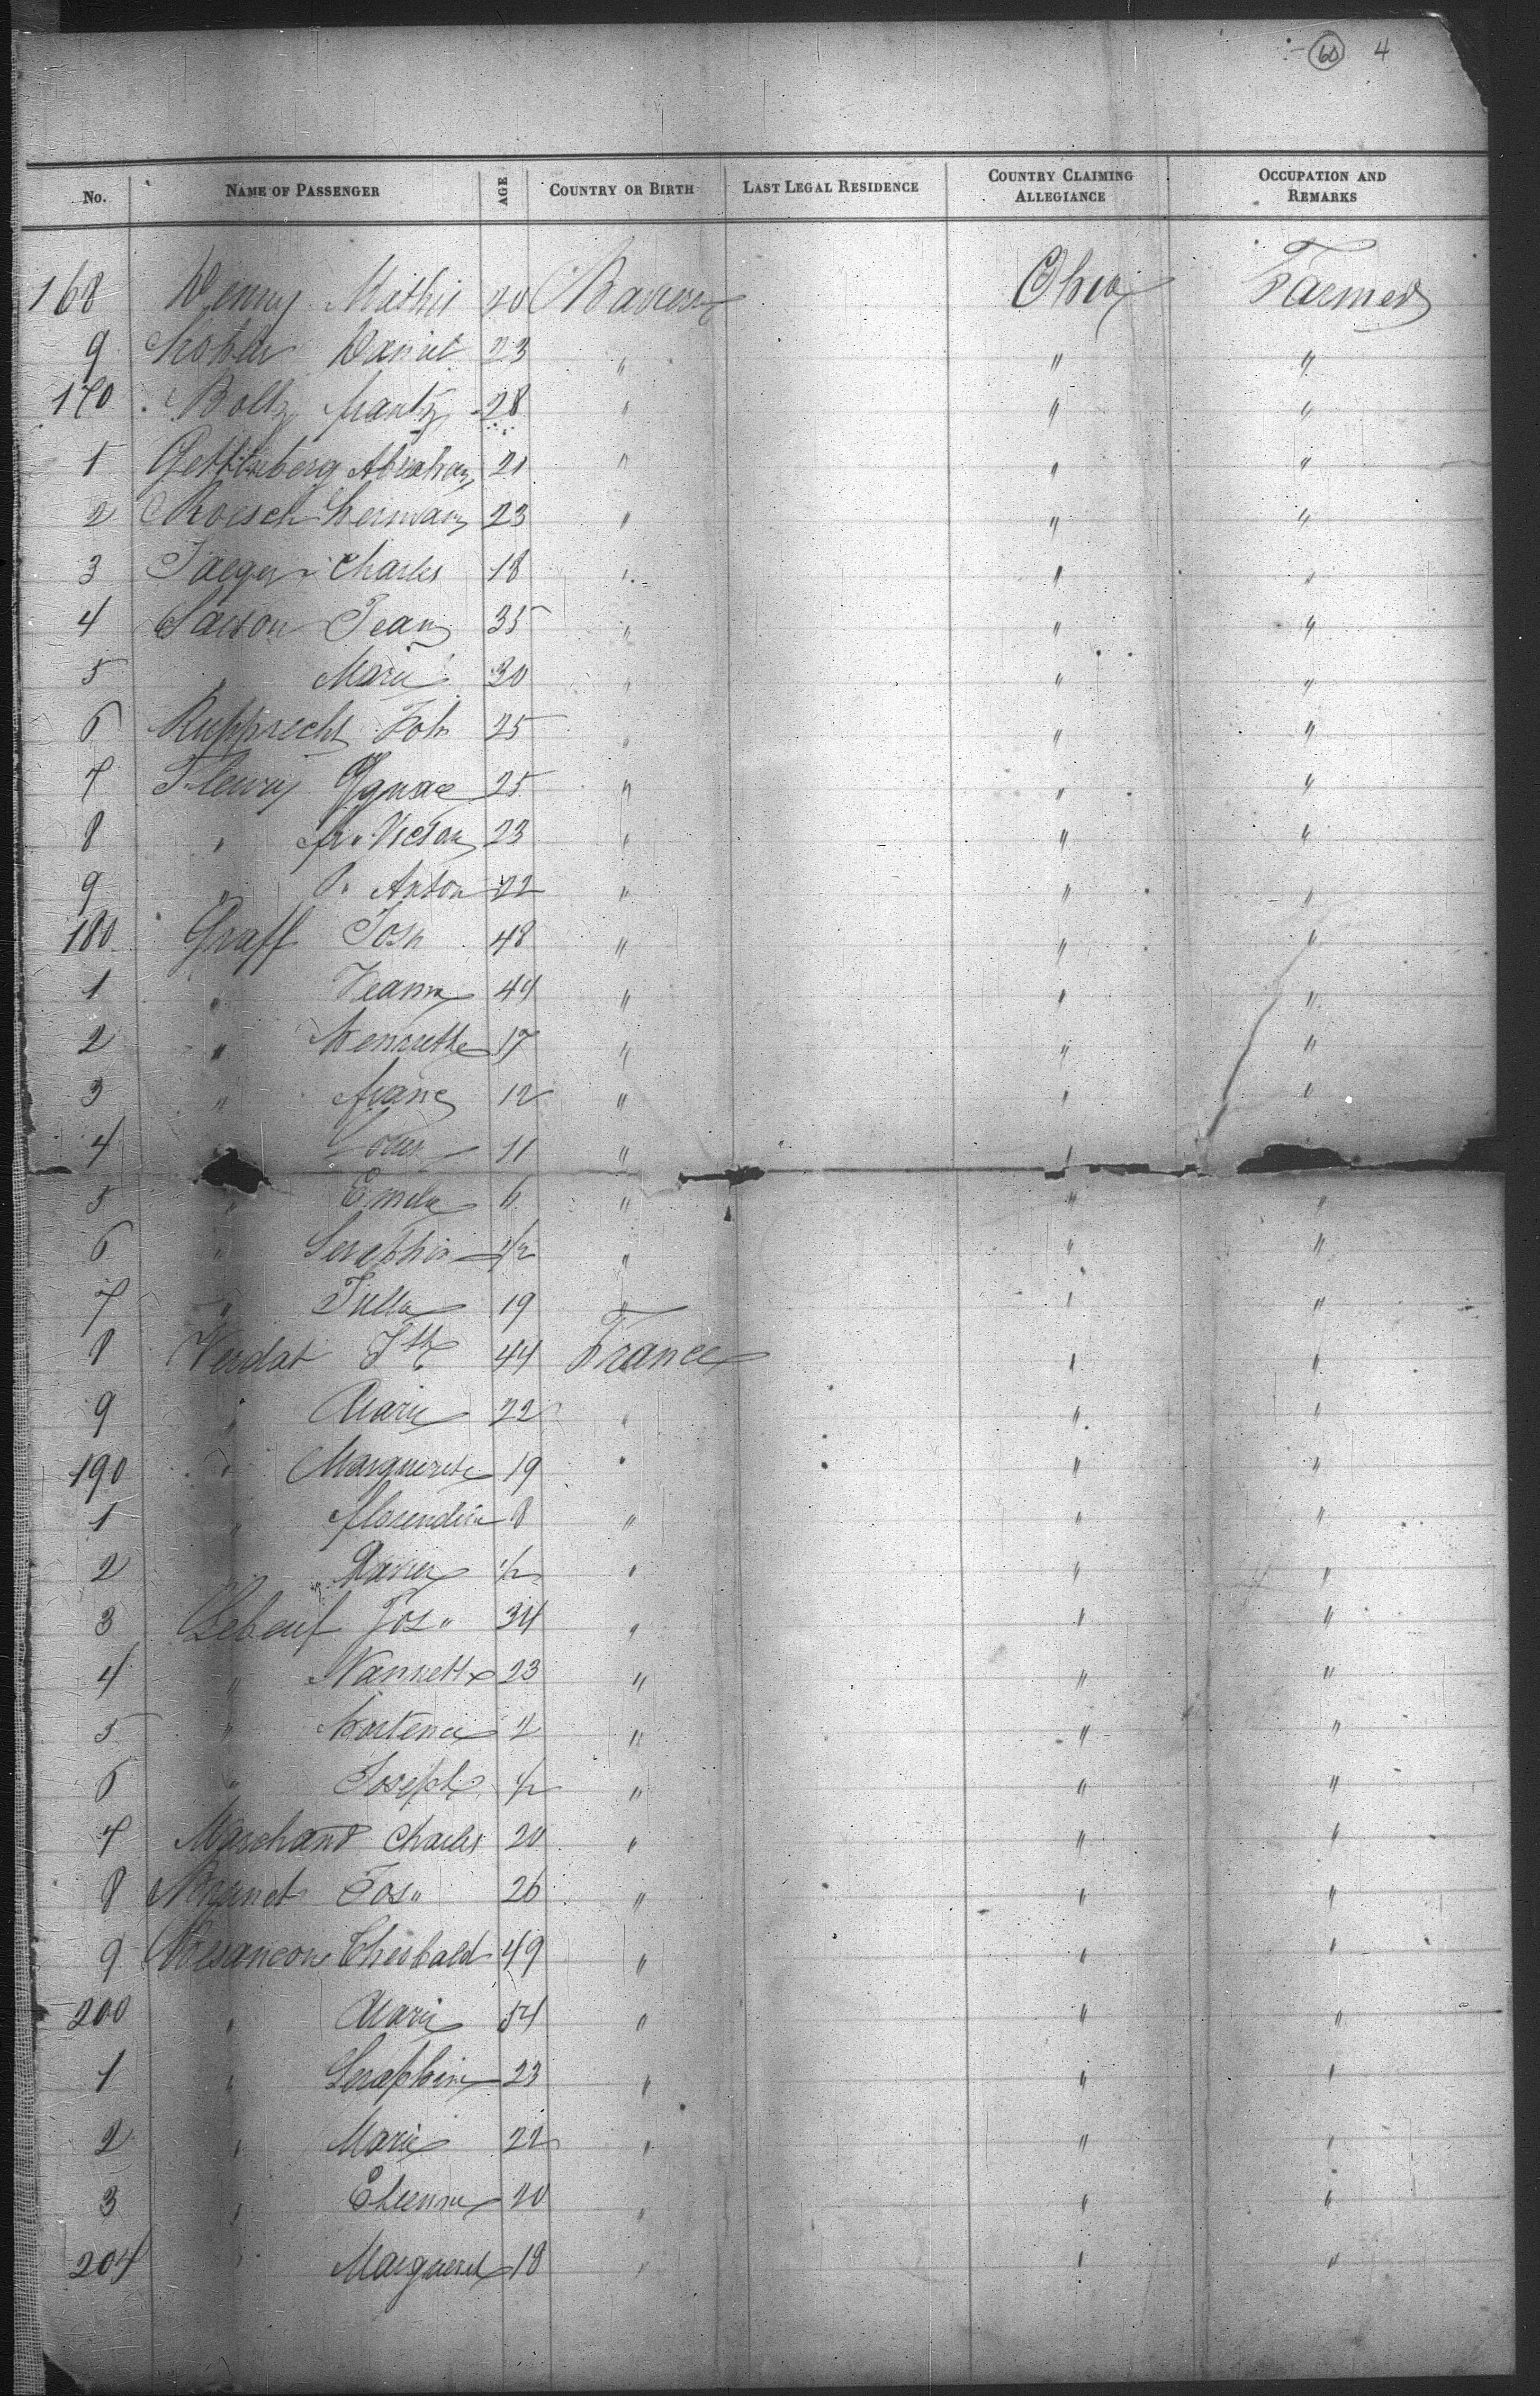 60 4
No. NAME OF PASSENGER AGE COUNTRY OR BIRTH LAST LEGAL RESIDENCE COUNTRY CLAIMING ALLEGIANCE OCCUPATION AND REMARKS
168 Mathis 20 Bavern Ohio Farmer
9 Daniel 23 " " "
170 Boltz frantz 28 " " "
1 Abraham 21 " " "
2 Roesch herman 23 " " "
3 Jaeger Charles 18 " " "
4 Jean 35 " " "
5 Marie 30 " " "
6 Rupprecht Joh 25 " " "
7 Fleury Ygnace 25 " " "
8 " fr. Victor 23 " " "
9 " Anton 22 " " "
180 Graff Josh 48 " " "
1 " Jeanne 44 " " "
2 " Henriette 17 " " "
3 " franc 12 " " "
4 Louis 11 " "
5 " Emile 6 " " "
6 " Seraphin 1/2 " " "
7 " Julie 19 " " "
8 Verdat Jth 44 France " "
9 " Marie 22 " " "
190 " Marguerite 19 " " "
1 " florendin 8 " " "
2 " Xavier 1/2 " " "
3 Lebeuf Jos " 34 " " "
4 " Nannette 23 " " "
5 " Hortence 2 " " "
6 " Joseph 1/2 " " "
7 Marchand Charles 20 " " "
8 Jos " 26 " " "
9 Besancon Theobald 49 " " "
200 " Marie 54 " " "
1 " Seraphin 23 " " "
2 " Marie 22 " " "
3 " Etienne 20 " " "
204 " Margueret 18 " " "